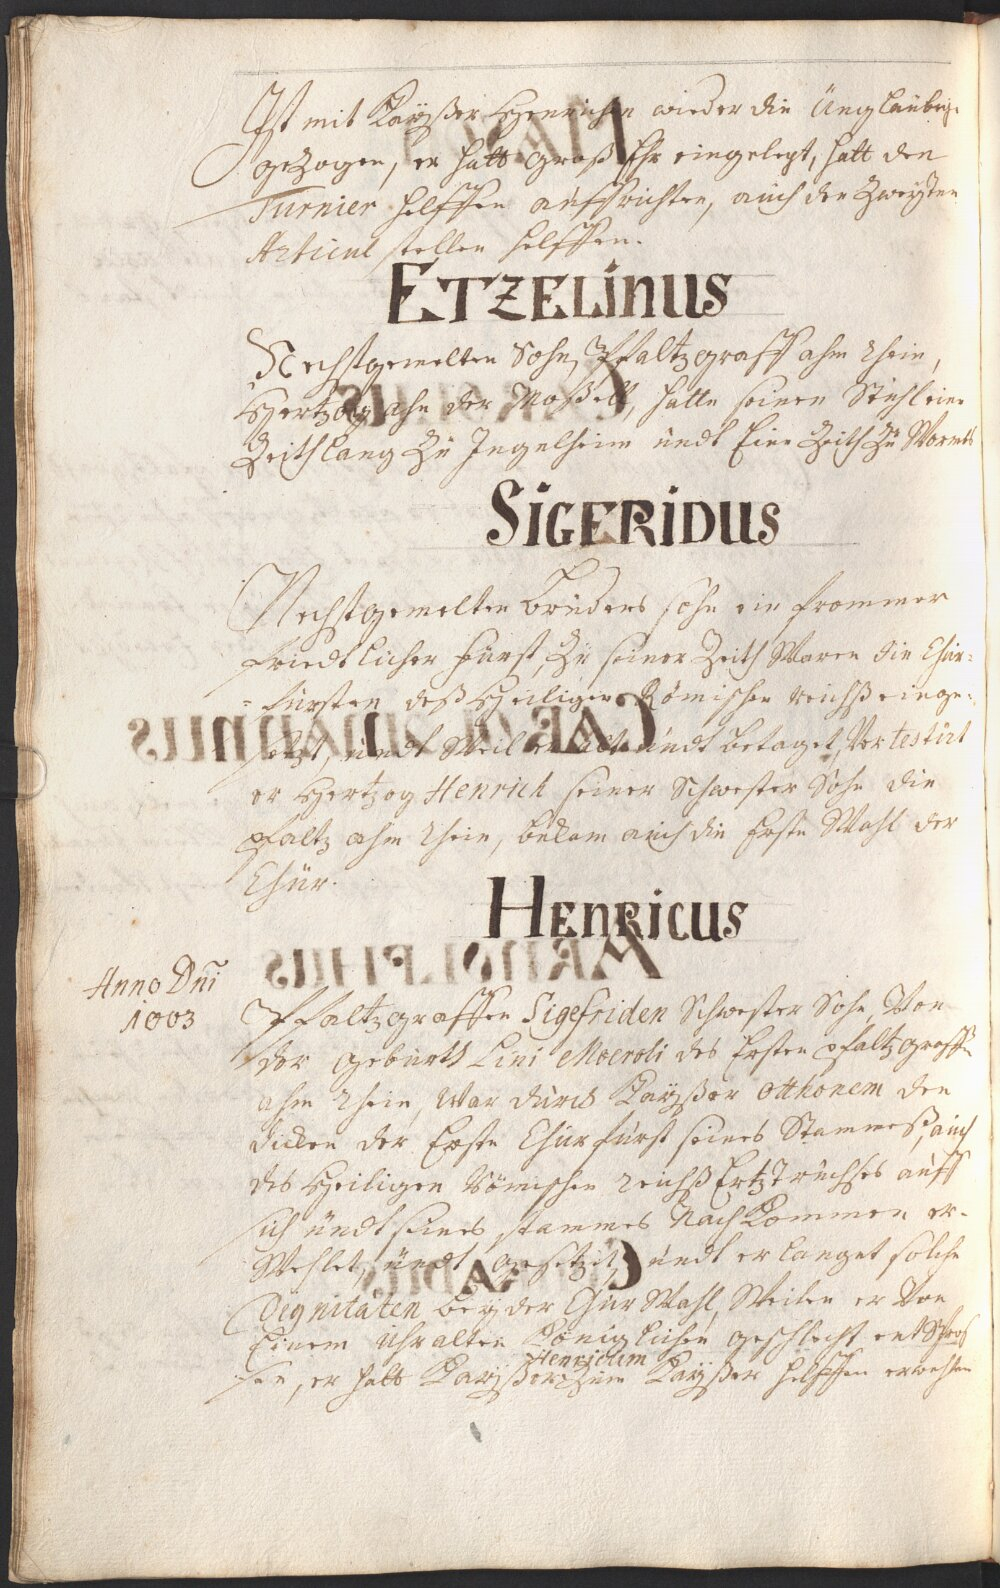 Ist mit Kaÿßer Henrichen wieder die Unglaubige
gezogen, er hatt groß Ehr eingelegt, hatt den
Turnier helffen auffrichten, auch den Zweÿten
Articul stellen helffen.
ETZELINUS
Nechstgemelten Sohn, Pfaltzgraff ahm Rhein,
Hertzog ahn der Moßell, hatte seinen Stuhl eine
Zeithlang Zu Ingelheim undt Eine Zeith Zu Wormbs
SIGERIDUS
Nechstgemelten bruders sohn ein frommer
friedtlicher fürst, Zu seiner Zeith Waren die Chur-
=fürsten deß Heiligen Römischen Reichß einge-
setzt, undt Weil er alt undt betaget, Vertestirt
er Hertzog Henrich seiner Schwester Sohn die
pfaltz ahm Rhein, bekam auch die Erste Wahl der
Chur.
HENRICUS
Anno Dni
1003
Pfaltzgraffen Sigefriden Schwester Sohn, Von
der geburth Lini Meroli des Ersten pfaltzgraffen
ahm Rhein, War durch Kaÿßer Otthonem den
dicken der Erste Churfürst seines Stammeß, auch
des Heiligen Römischen Reichß Ertztruchses auff
sich undt seines stammes NachKommen er-
Wehlet, undt gesetzet, undt erlanget solche
Dignitäten beÿ der Chur Wahl, Weilen er Von
Einem Uhralten Königlichen geschlecht entspros
sen, er hatt Kaÿßer Henricum Zum Kaÿßer helffen erwehlen